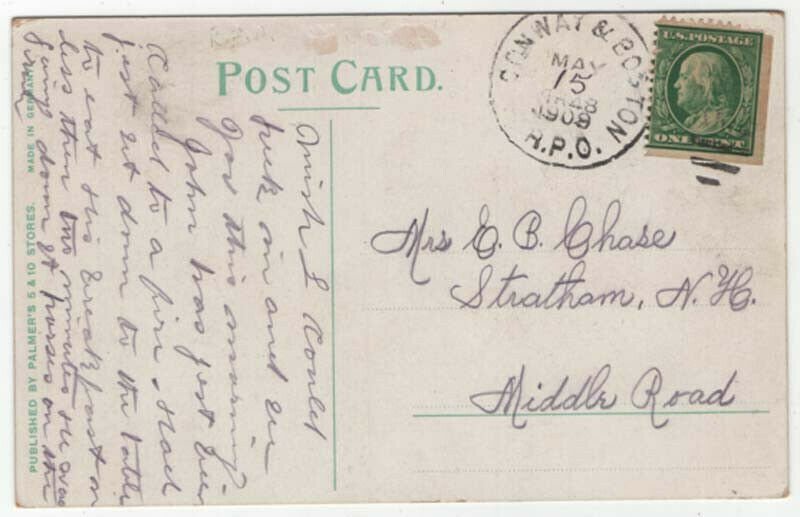 POST CARD.
CONWAY & BOSTON
MAY
15
1909
R.P.O.
U.S. POSTAGE
ONE CENT
Mrs E. B. Chase
Stratham, N. H.
Middle Road
Wish I could
in and
you this morning
John has just been
called to a fire had
just set down to the table
to eat his breakfast
less then two minutes he was
going down st horses on the
PUBLISHED BY PALMER'S 5 & 10 STORES.
MADE IN GERMANY